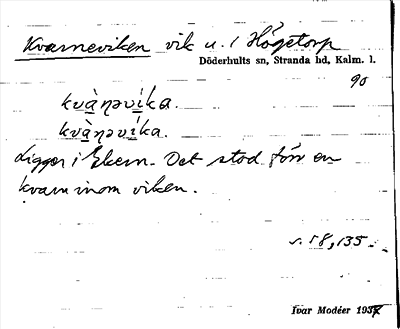 Kvarneviken vik u. / Högetorp
Döderhults sn, Stranda hd, Kalm. l.
90
kvà̱ṇəvi̱ka.
kvà̱ṇəvi̱ka.
Ligger i Ekern. Det stod förr en
kvarn inom viken.
s. 58, 135.
Ivar Modéer 1937